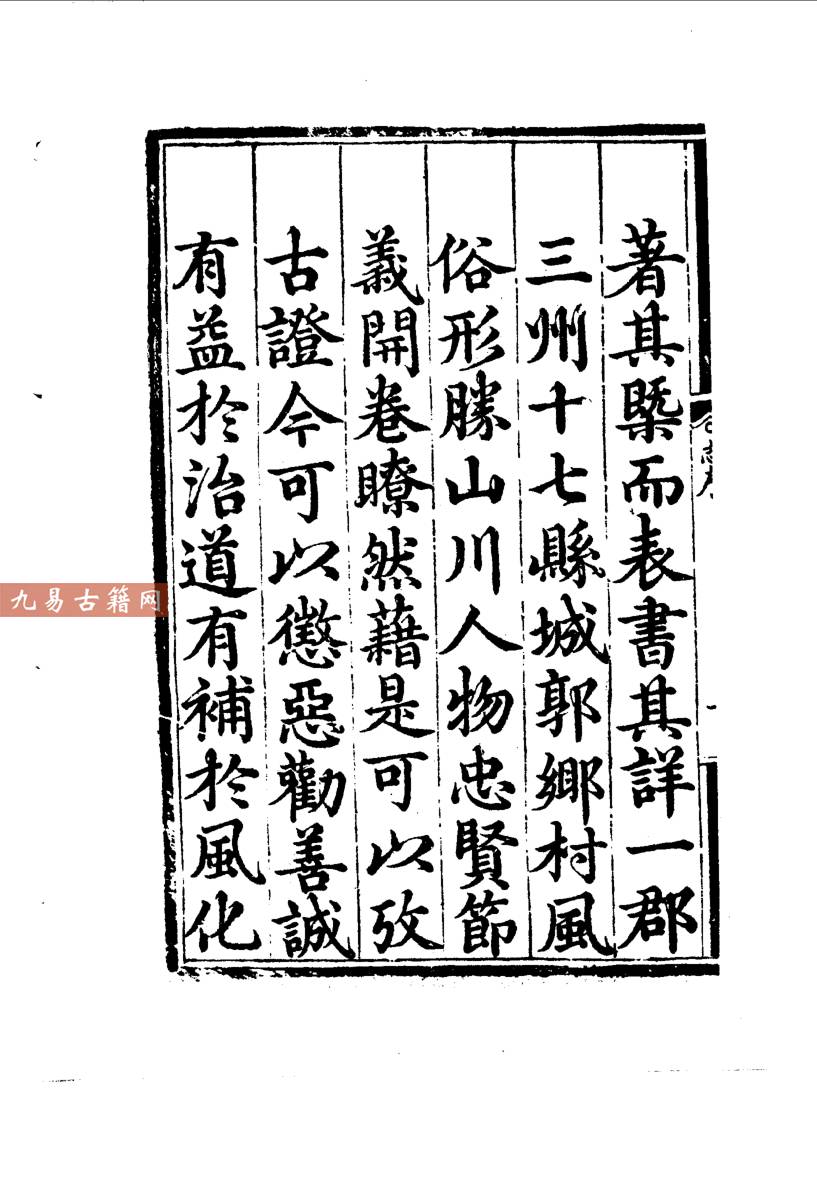 著其槩而表書其詳一郡
三州十七縣城郭鄉村風
俗形勝山川人物忠賢節
義開卷瞭然藉是可以攷
古證今可以懲惡勸善誠
有益於治道有補於風化
九易古籍网